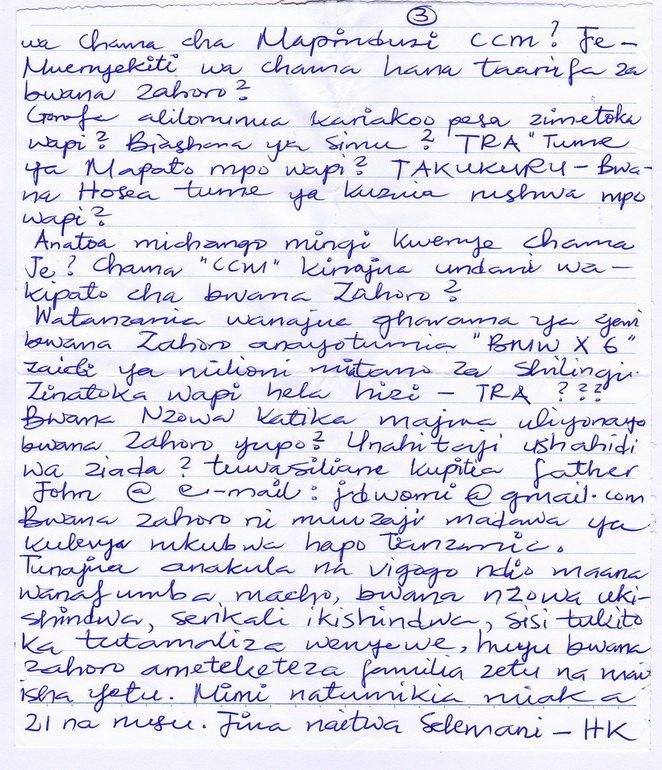 3
wa chama cha Mapinduzi CCM? Je-
Mwenyekiti wa chama hana taarifa za
bwana Zahoro?
Gorofa alilominua kariakoo pesa zimetoka
wapi? Biashara ya Simu? "TRA" Tume
ya Mapato mpo wapi? TAKUKURU - Bwa-
na Hosea tume ya kuzuia rushwa mpo
wapi?
Anatoa michango mingi kwenye chama
Je? Chama "CCM" kinajua undani wa-
kipato cha bwana Zahoro?
Watanzania wanajua gharama ya gari
bwana Zahoro anayotumia "BMW X 6"
zaidi ya milioni mitano za Shilingi.
Zinatoka wapi hela hizi - TRA ???
Bwana Nzowa katika majina uliyonayo
bwana Zahoro yupo? Unahitaji ushahidi
wa ziada? tuwasiliane kupitia father
John @ e-mail: jdwomi@gmail.com
Bwana Zahoro ni muuzaji madawa ya
kulevya mkubwa hapo Tanzania.
Tunajua anakula na vigogo ndio maana
wanafumba macho, bwana nzowa uki-
shindwa, serikali ikishindwa, sisi tukito
ka tutamaliza wenyewe, huyu bwana
Zahoro ameteketeza familia zetu na mai
isha yetu. Mimi natumikia miaka
21 na nusu. Jina naitwa Selemani - HK